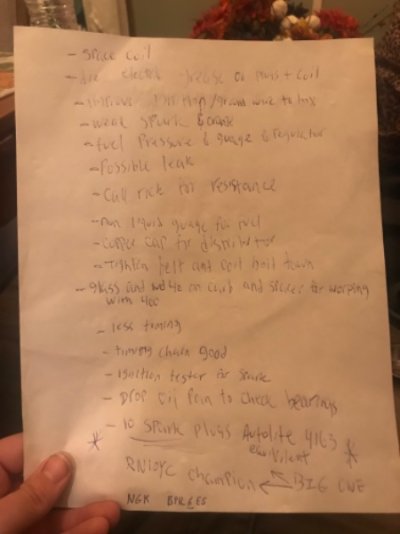 - Space coil
- electric grease on plugs + coil
- wire to
- weak spark & crank
- fuel Pressure & guage & regulator
- Possible leak
- Call rick for resistance
- non liquid guage for fuel
- copper cap for distributor
- Tighten belt and coil bolt down
- glass and wd40 on carb and spacer for warping
with 400
- less timing
- timing chain good
- ignition tester for spark
- Drop oil pan to check bearings
* - 10 spark plugs Autolite 4163 *
equivilent
RN10YC Champion ← BIG ONE
NGK BPR6ES